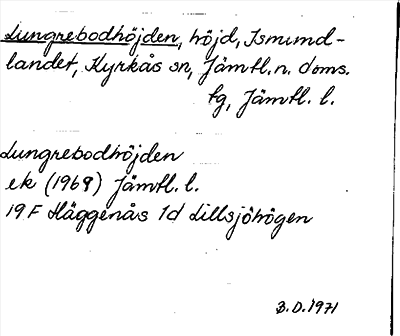 Lungrebodhöjden, höjd, Ismund-
landet, Kyrkås sn, Jämtl. n. doms.
tg, Jämtl. l.
Lungrebodhöjden
ek (1969) Jämtl. l.
19F Häggenås 1d Lillsjöhögen
B.D. 1971